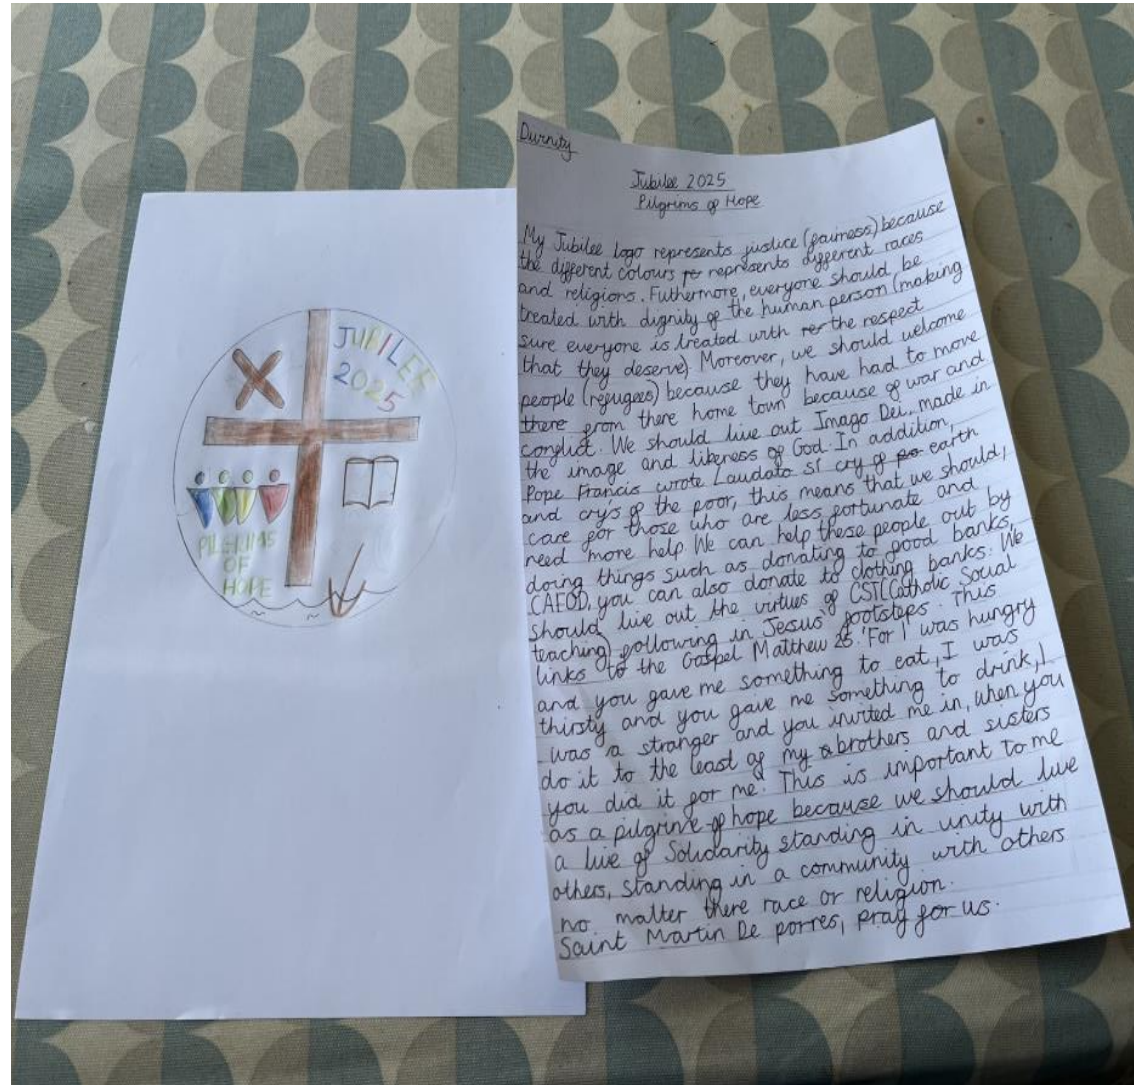 JUBILEE
2025
PILGRIMS
OF
HOPE
Jubilee 2025
Pilgrims of Hope
My Jubilee logo represents justice (fairness) because
the different colours re represents different races
and religions. Futhermore, everyone should be
treated with dignity of the human person (making
sure everyone is treated with rer the respect
that they deserve) Moreover, we should welcome
people (refugees) because they have had to move
there from there home town because of war and
conflict. We should live out Imago Dei, made in
the image and likeness of God. In addition,
Pope Francis wrote Laudato Si cry of earth
and crys of the poor, this means that we should,
care for those who are less fortunate and
need more help. We can help these people out by
doing things such as donating to food banks,
CAFOD, you can also donate to clothing banks. We
should live out the virtues of CST(Catholic Social
teaching) following in Jesus' footsteps. This
links to the Gospel Matthew 25. 'For I was hungry
and you gave me something to eat, I was
thirsty and you gave me something to drink, I
was a stranger and you invited me in, when you
do it to the least of my brothers and sisters
you did it for me.' This is important to me
as a pilgrim of hope because we should live
a live of Solidarity standing in unity with
others, standing in a community with others
no matter there race or religion.
Saint Martin De porres, pray for us.